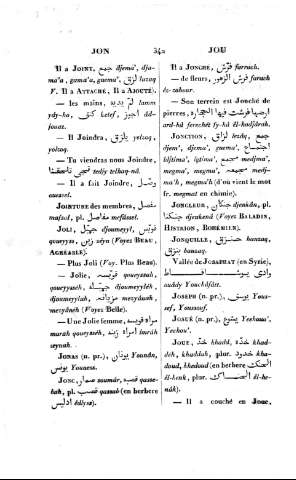 JON 342 JOU
Il a JOINT, جمع djema', dja-
ma'a, gama'a, guema', لزق lazaq
V. Il a ATTACHÉ, Il a AJOUTÉ).
— les mains, لم يديه lamm
ydy-ho, كتف ketef, اجوز
djouaz.
— Il Joindra, يلزق yelzoq,
yolzaq.
— Tu viendras nous Joindre,
تجي tedjy telhaq-nâ.
— Il a fait Joindre, وصل
ouassel.
JOINTURE des membres, مفصل
mafsel, pl. مفاصل mefâssel.
JOLI, djoumeyl, كويس
qoueyys, زين zéyn (Voyez BEAU,
AGRÉABLE).
— Plus Joli (Voy. Plus BEAU).
— Jolie, قويسه qoueyseh,
qoueyyseh, جميله djoumeyléh,
djoumeylah, مزيانه mezyâneh,
mezyânéh (Voyez Belle).
— Une Jolie femme, مراه قويسه
marah qoueyseh, امراه زينه imrâh
zeynah.
JONAS (n. pr.), يونان Younân,
يونس Youness.
JONC, سمار soumâr, قصب qasse-
bah, pl. قصب qassab (en berbere
ادليس èdlyss).
Il a JONCHÉ, فرش farach
— de fleurs, فرش الزهور farach
êz-zohour.
— Son terrein est Jonché de
pierres, ارضها فرشت فيها الحجاره
ard-hâ ferechét fy-hâ êl-hadjârah.
JONCTION, لزق lezâq, جمع
djem', djema', guema', اجتماع
idjtimâ', igtima', مجمع medjma',
megma', مجمعه medj-
ma'h, megma'h (d'où vient le mot
fr. magmat en chimie).
JONGLEUR, جنكان djenkân, pl.
جنكنا djenkenâ (Voyez BALADIN,
HISTRION, BOHÉMIEN).
JONQUILLE, خنزق hanzaq,
hanzaq.
Vallée de JOSAPHAT (en Syrie),
وادي يوشافاط
ouâdy Youchâfâtt.
JOSEPH (n. pr.), يوسف Yous-
sef, Youssouf.
JOSUÉ (n. pr.), يشوع Yechou',
Yechou'.
JOUE, خد khadd, خده khad-
déh, khaddah, plur. خدود khou-
doud, khedoud (en berbere الحنك
êl-henk, plur. الحناك êl-he-
nâk).
— Il a couché en JOUE,